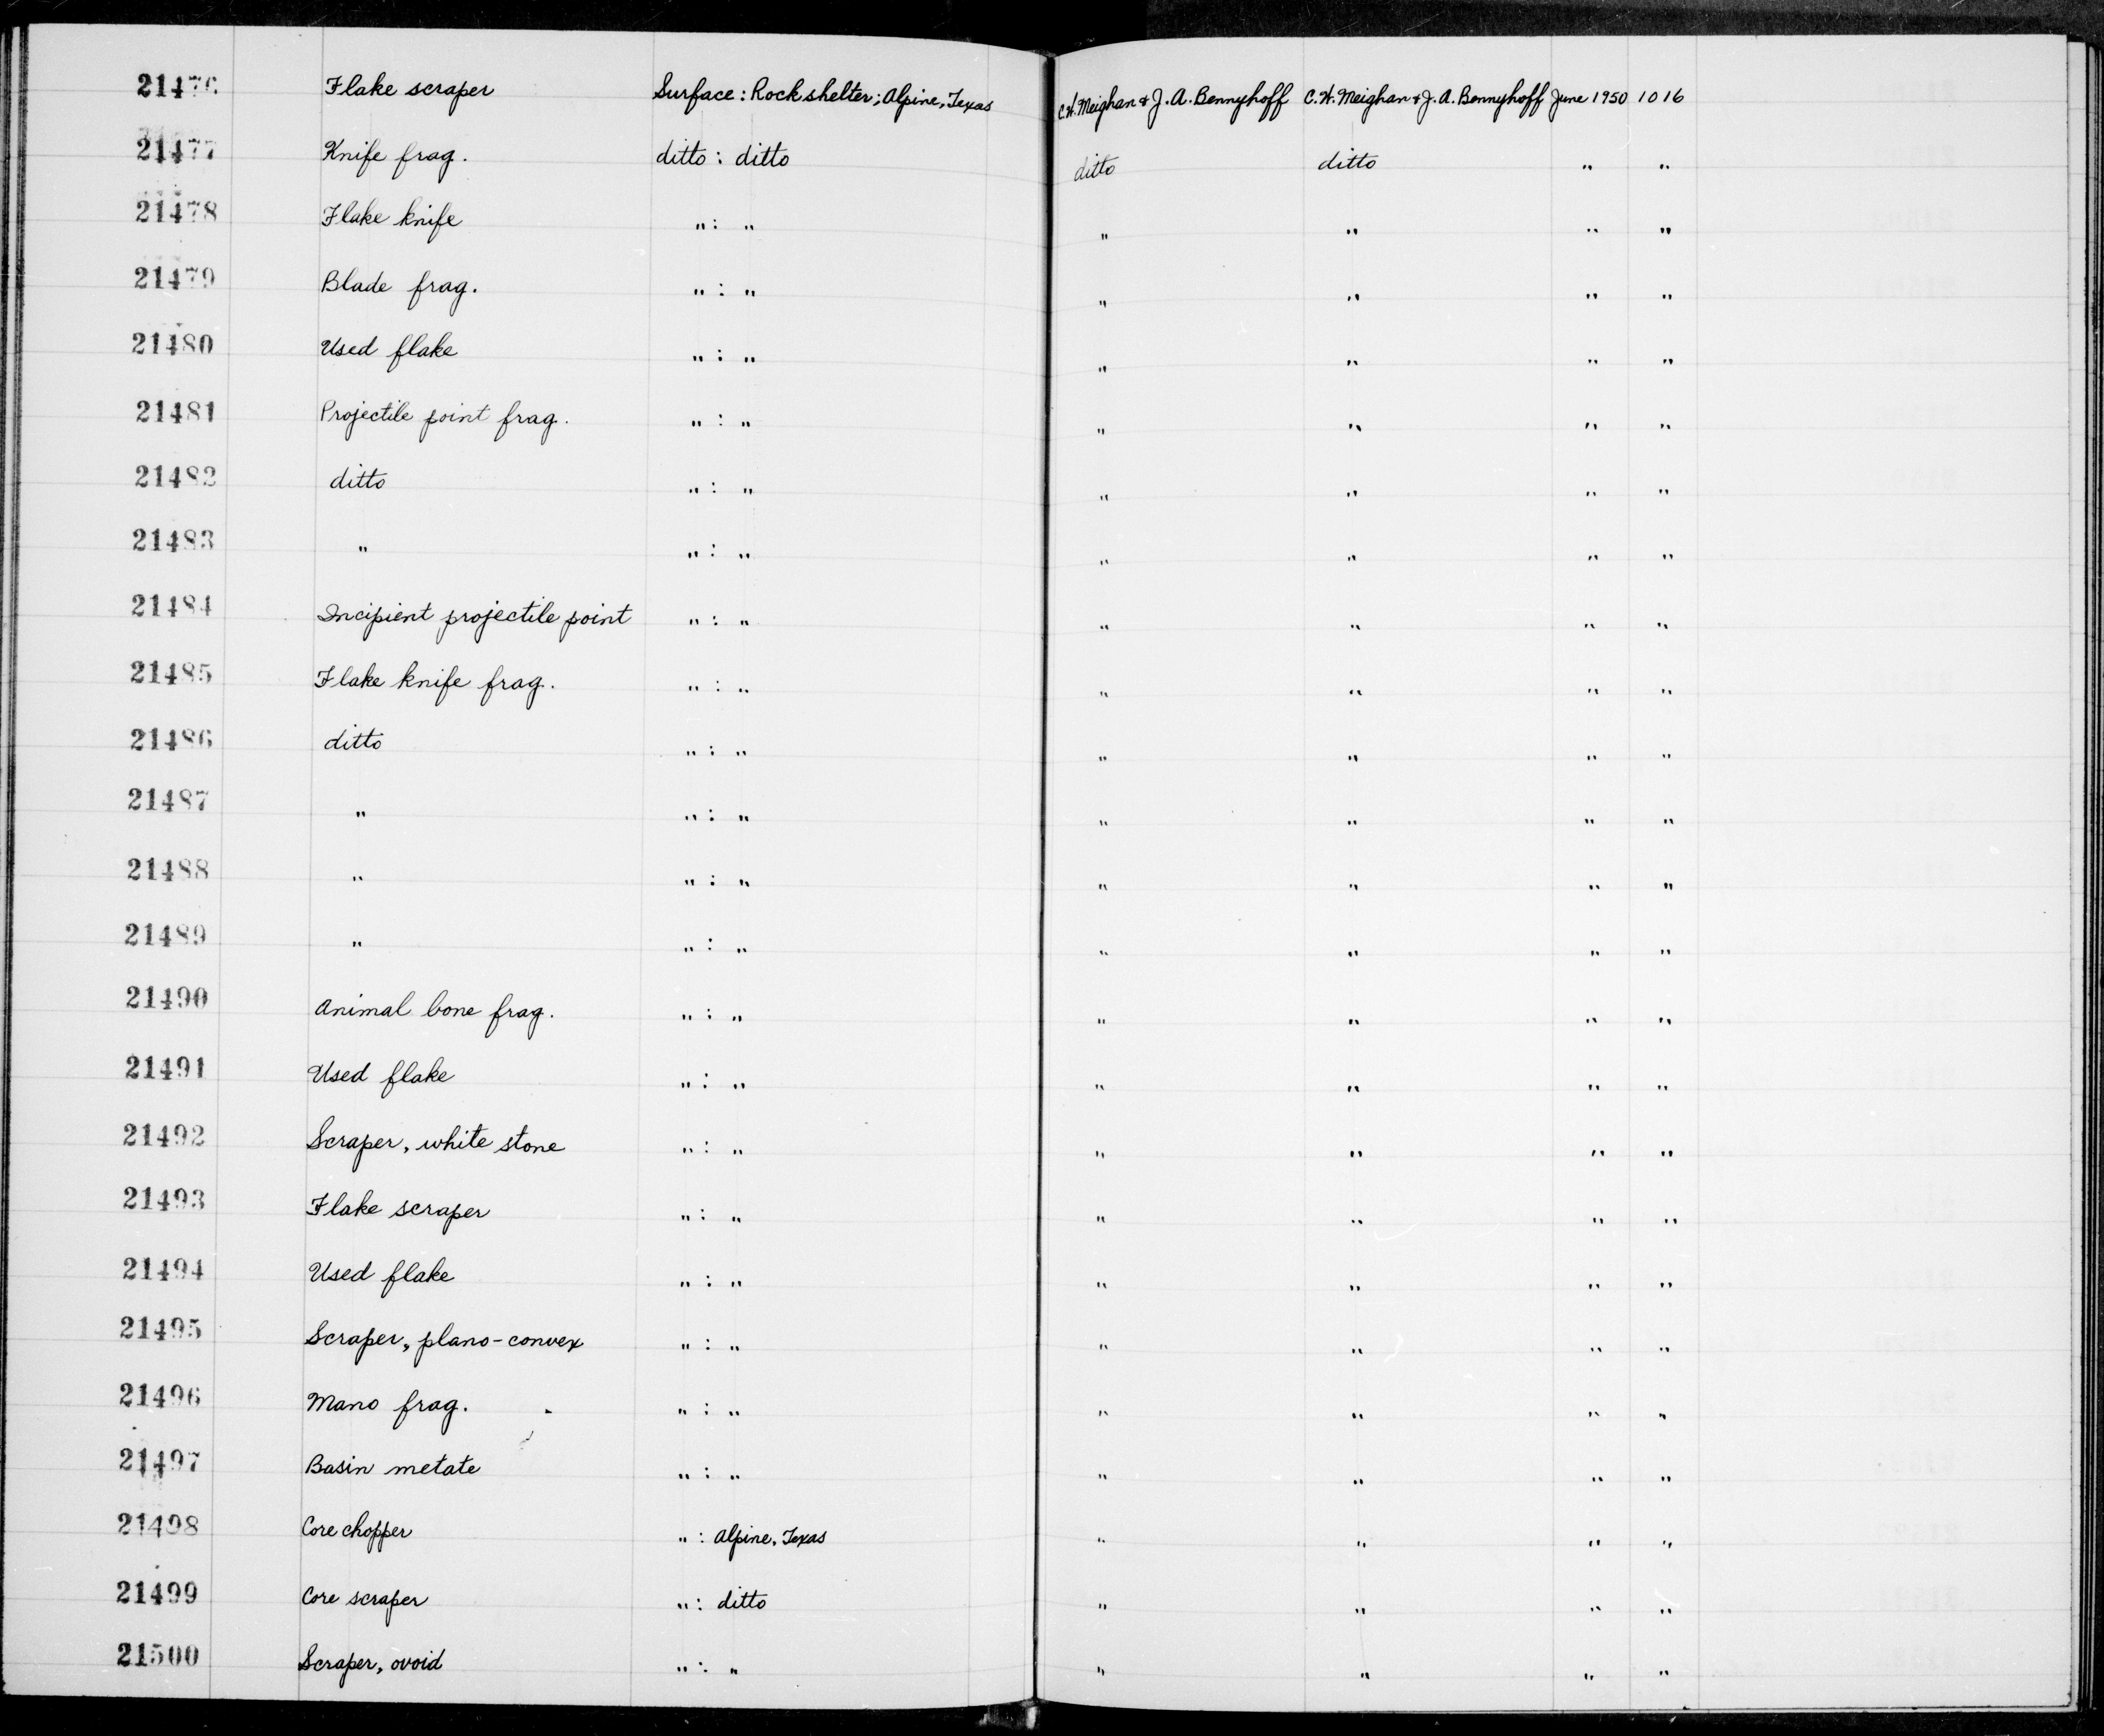 21476 Flake scraper Surface: Rockshelter; Alpine, Texas C.W. Meighan & J. A. Bennyhoff C. W. Meighan & J. A. Bennyhoff June 1950 1016
21477 Knife frag. ditto : ditto ditto ditto " "
21478 Flake knife " : " " " " "
21479 Blade frag. " : " " " " "
21480 Used flake " : " " " " "
21481 Projectile point frag. " : " " " " "
21482 ditto " : " " " " "
21483 " " : " " " " "
21484 Incipient projectile point " : " " " " "
21485 Flake knife frag. " : " " " " "
21486 ditto " : " " " " "
21487 " " : " " " " "
21488 " " : " " " " "
21489 " " : " " " " "
21490 Animal bone frag. " : " " " " "
21491 Used flake " : " " " " "
21492 Scraper, white stone " : " " " " "
21493 Flake scraper " : " " " " "
21494 Used flake " : " " " " "
21495 Scraper, plano-convex " : " " " " "
21496 Mano frag. " : " " " " "
21497 Basin metate " : " " " " "
21498 Core chopper " : Alpine, Texas " " " "
21499 Core scraper " : ditto " " " "
21500 Scraper, ovoid " : " " " " "